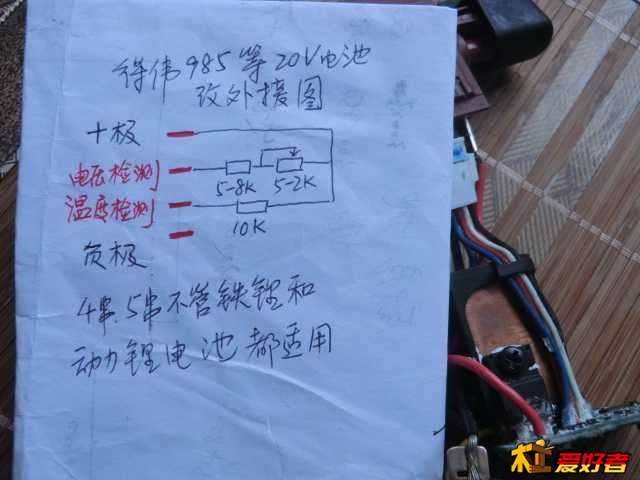 得伟985等20V电池
改外接图
十极
电压检测
5-8K 5-2K
温度检测
10K
负极
4串.5串不管铁锂和
动力锂电池都适用
爱好者